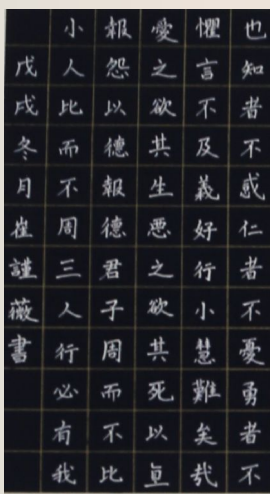 也知者不惑仁者不憂勇者不
懼言不及義好行小慧難矣哉
愛之欲其生悪之欲其死以直
報怨以德報德君子周而不比
小人比而不周三人行必有我
戊戌冬月崔謹薇書